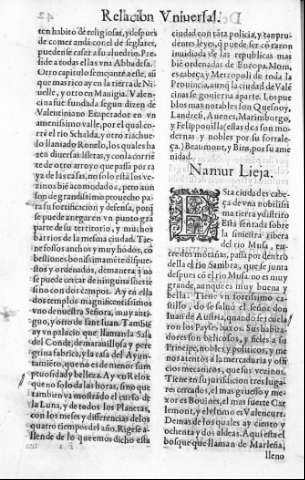 Relacion Vniuersal.
ten habito de religiosas, y despues
de comer andã con el de seglares,
pueden se casar a su aluedrio. Pre-
side a todas ellas vna Abbadesa.
Otro capitulo semejante a este, assi
que mas rico ay en la tierra de Ni-
uelle, y otro en Maugia. Valen-
cina fue fundada segun dizen de
Valentiniano Emperador en vn
amenissimo valle, por el qual cor-
re el rio Schalda, y otro riachue-
do llamado Ronelo, los quales ha-
ze diuersas Isletas, y con la corriẽ
te de otro arroyo que passa por ca
ya de las casas, no solo està los ve-
zinos biẽ acomodados, pero aun
son de grandissimo prouecho pa-
ra su fortificacion y defensa, porq̃
se puede anegar en vn punto grã
parte de su territorio, y muchos
barrios de la mesma ciudad. Tie-
ne fossos anchos y muy hõdos, cõ
bestiones bonissimamẽte dispues-
tos y ordenados, de manera q̃ no
se puede cercar de ninguna suerte
sino con dos campos. Ay en ella
dos templos magnificentissimos
vno de nuestra Señora, muy anti-
guo, y otro de san Iuan. Tambiẽ
ay vn palacio que llaman la Sala
del Conde, de marauillosa y pere-
grina fabrica, y la casa del Ayun-
tamiento, que no es de menor sum
ptuosidad y belleza. Ay vn Relox
que no solo da las horas, sino que
tambien va mostrado el curso de
la Luna, y de todos los Planetas,
con los meses y diferencias de los
quatro tiempos del año. Rigese a-
llende de lo que emos dicho esta
ciudad con tãta policia, y tan pru-
dentes leyes, q̃ puede ser cõ razon
inuidiada de las republicas mas
biẽ ordenadas de Europa. Mons,
es cabeça y Metropoli de toda la
Prouincia, aunq̃ la ciudad de Valẽ
cina se gouierna aparte. Los pue-
blos mas notables son Quesnoy,
Landresi, Auenes, Mariemburgo,
y Felippouilla, estas dos son mo-
dernas y nobles por su fortale-
ça, Beaumont, y Bins, por su ame-
nidad.
Namur Lieja.
ESta ciudad es cabe-
ça de vna nobilissi
ma tierra y distrito
Està sentada sobre
la siniestra ribera
del rio Musa, en-
tre dos mõtañas, passa por dentro
della el rio Sambra, que se junta
despues cõ el rio Musa. no es muy
grande, aunque es muy buena y
bella. Tiene vn fortissimo ca-
stillo, do se saluò el señor don
Iuan de Austria, quando se reuela
ron los Payses baxos. Sus habita-
dores son belicosos, y fieles a su
Principe, nobles, y politicos, y me
nos atentos a la mercaderia y ofi-
cios mecanicos, que sus vezinos.
Tiene en su jurisdicion tres luga-
res cercados, el mas gruesso y me-
jor es Bouines, el mas fuerte Car
lemont, y el vltimo es Valencurt.
Demas de los quales ay ciento y
ochenta y dos aldeas. Aqui està el
bosque que llaman de Marleña,
lleno